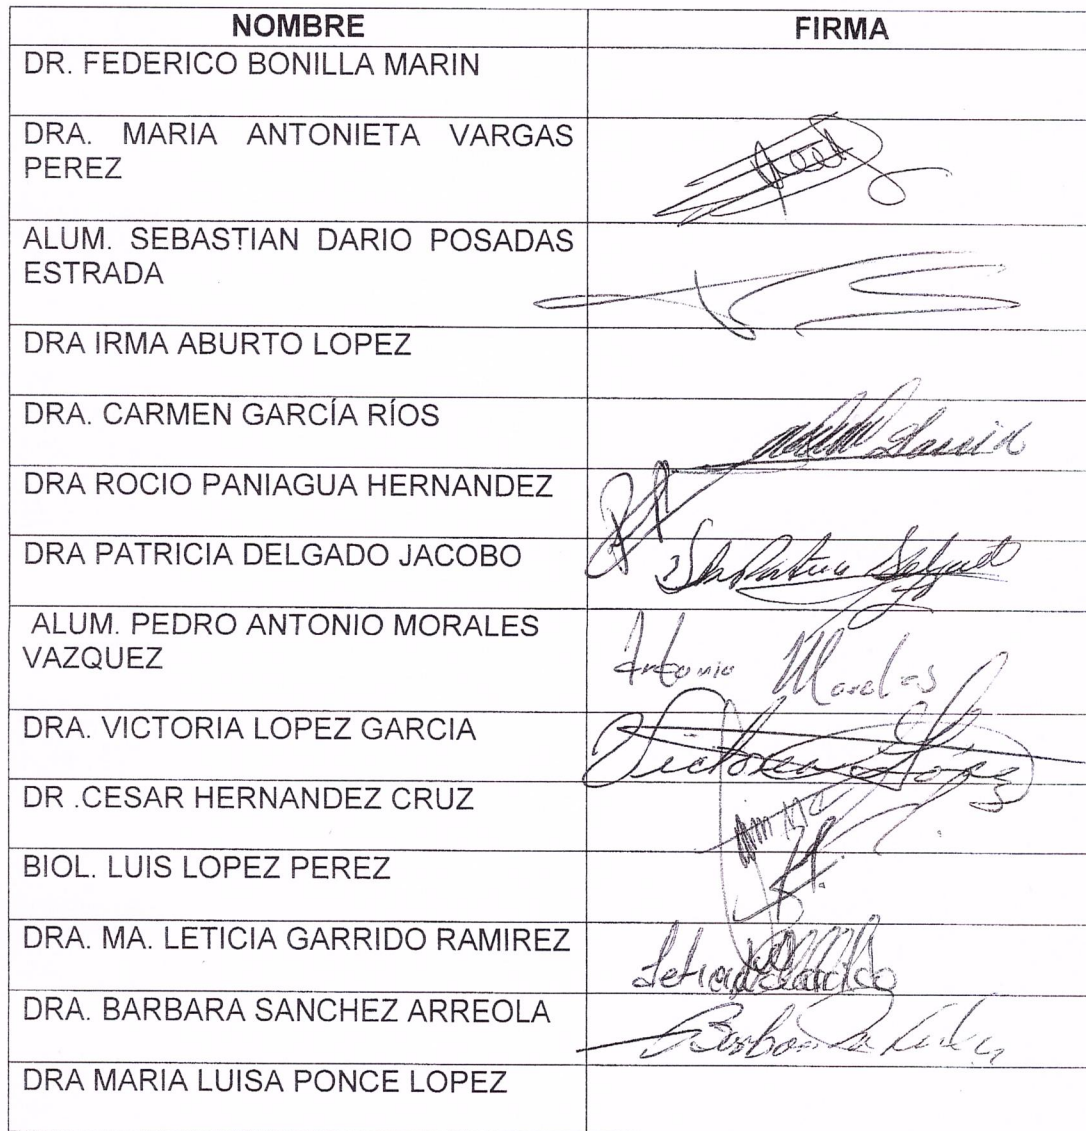 NOMBRE FIRMA
DR. FEDERICO BONILLA MARIN
DRA. MARIA ANTONIETA VARGAS
PEREZ
ALUM. SEBASTIAN DARIO POSADAS
ESTRADA
DRA IRMA ABURTO LOPEZ
DRA. CARMEN GARCÍA RÍOS
DRA ROCIO PANIAGUA HERNANDEZ
DRA PATRICIA DELGADO JACOBO
ALUM. PEDRO ANTONIO MORALES
VAZQUEZ
Antonio Morales
DRA. VICTORIA LOPEZ GARCIA
Victoria López
DR .CESAR HERNANDEZ CRUZ
BIOL. LUIS LOPEZ PEREZ
DRA. MA. LETICIA GARRIDO RAMIREZ
Leticia Garrido
DRA. BARBARA SANCHEZ ARREOLA
DRA MARIA LUISA PONCE LOPEZ